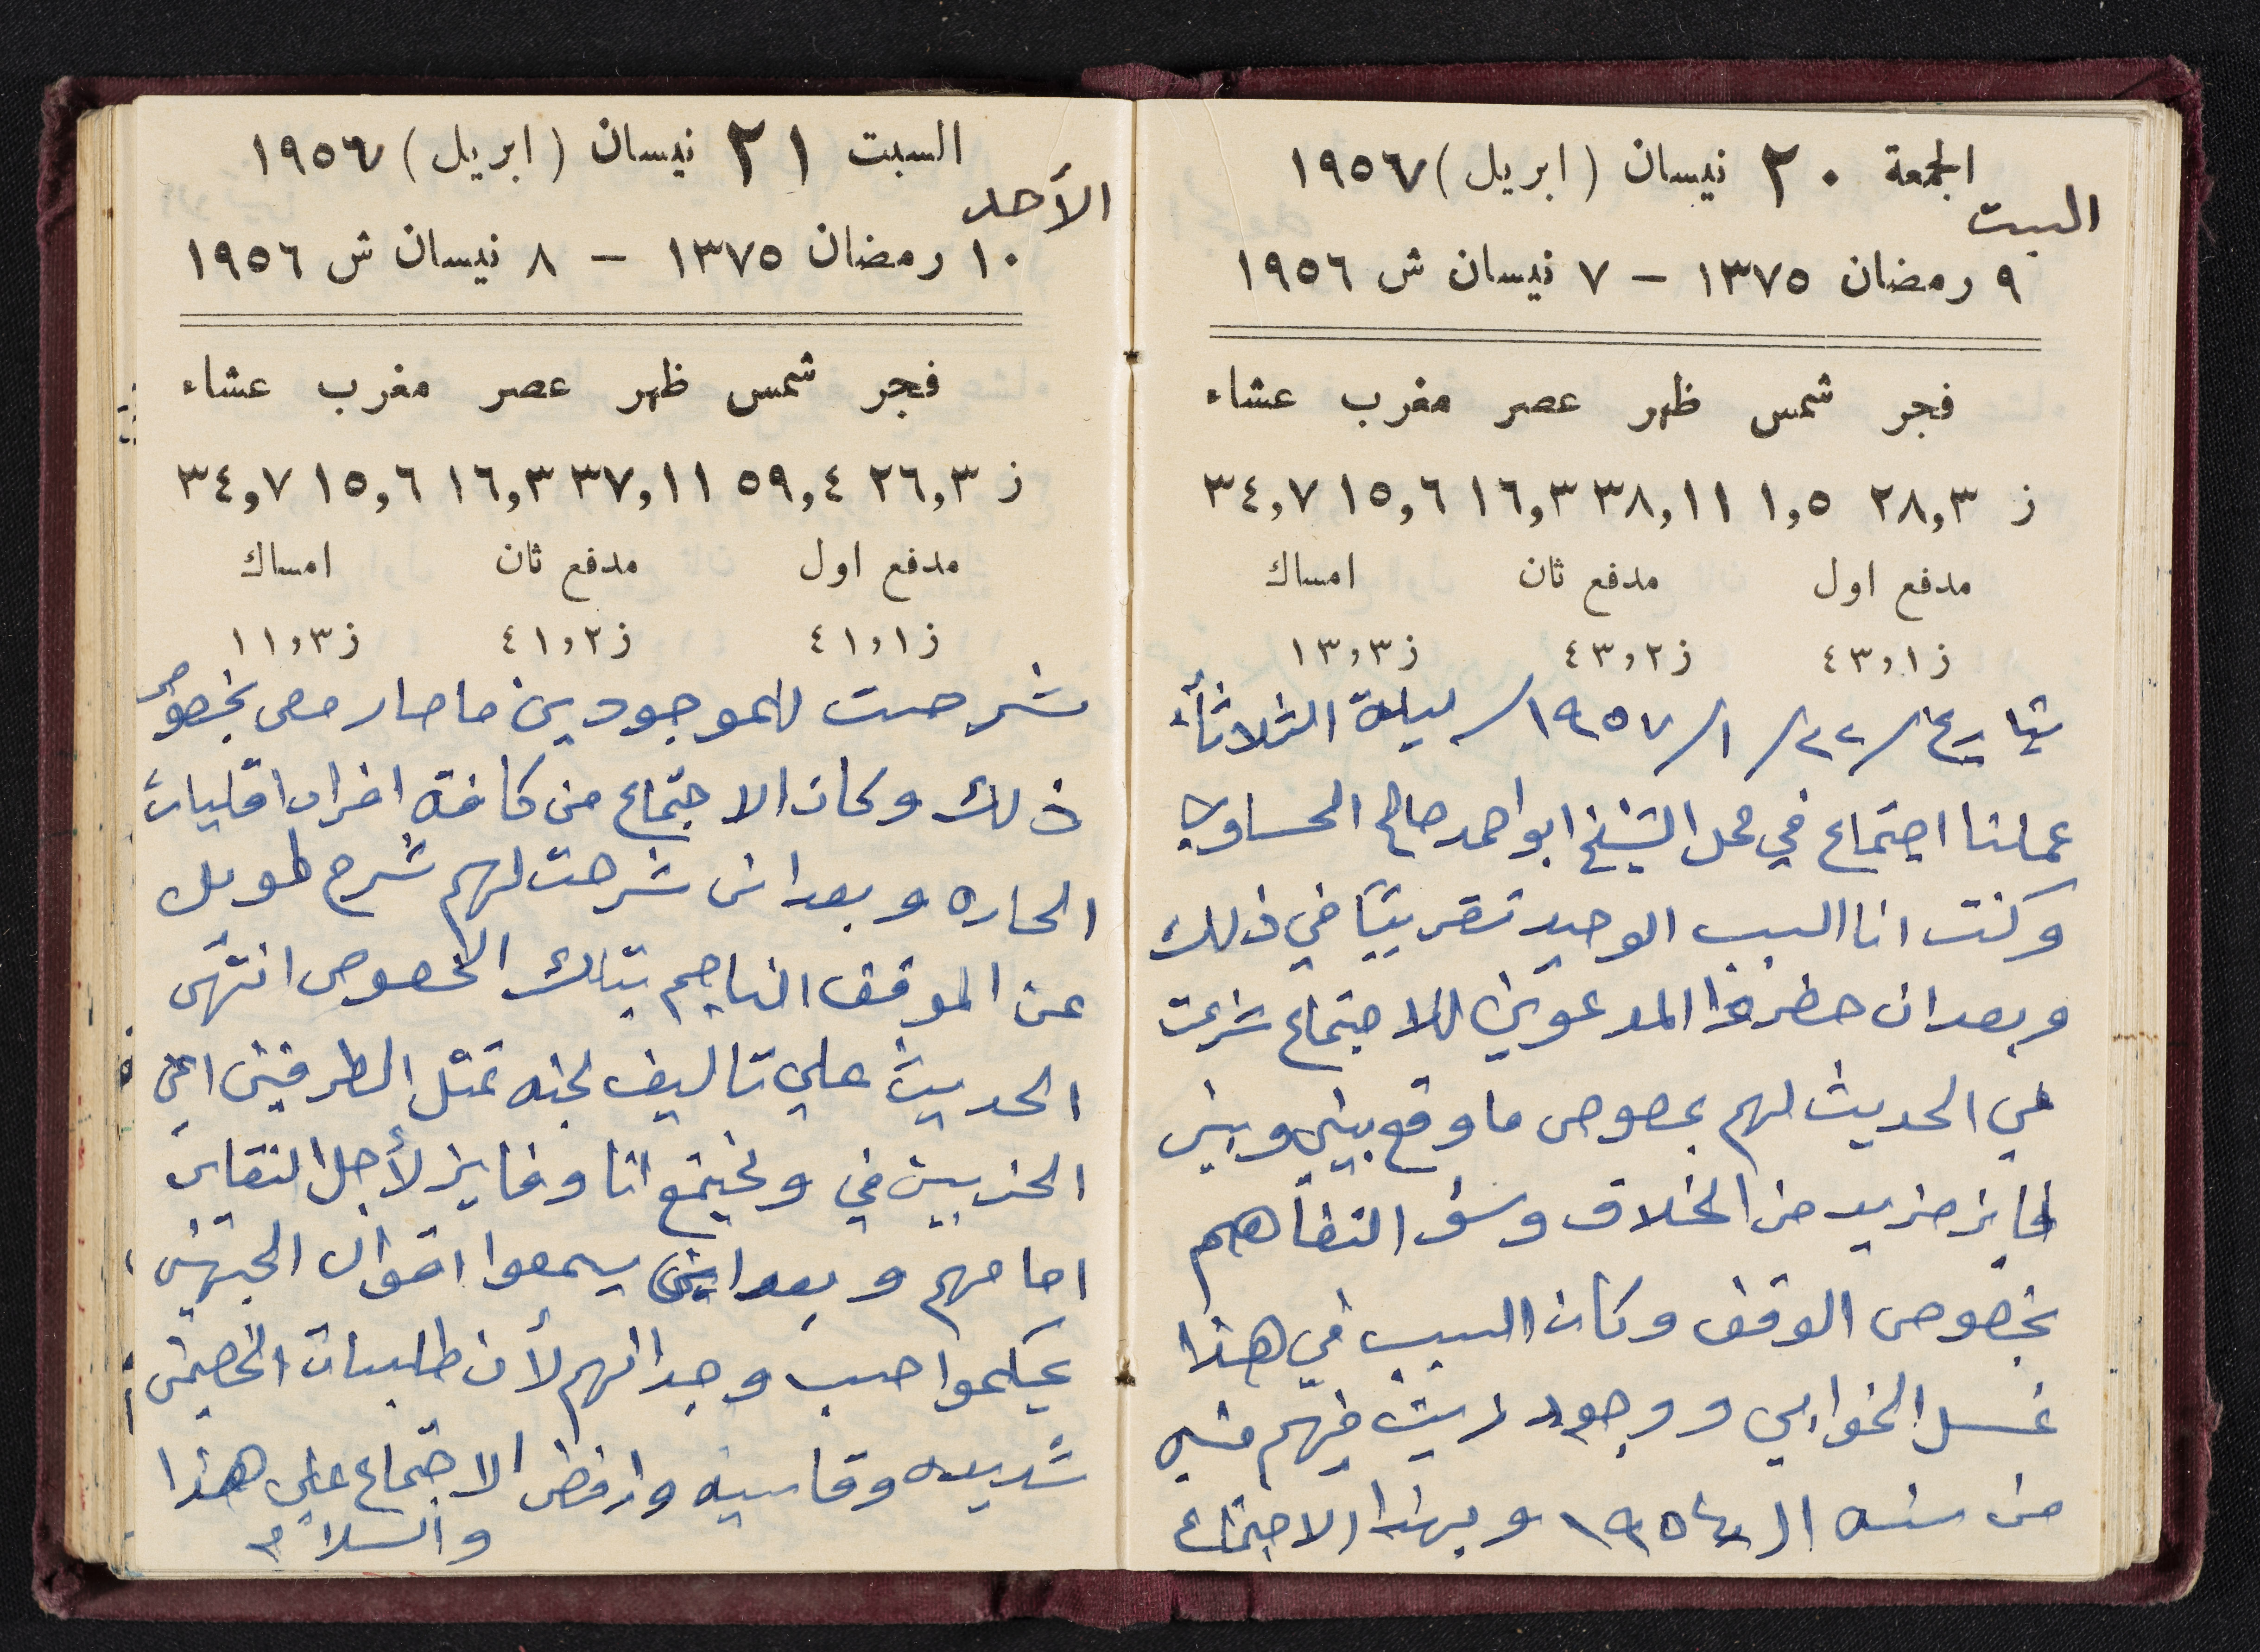 الجمعة ٢٠ نيسان (ابريل) ١٩٥٧
السبت
٩ رمضان ١٣٧٥ – ٧ نيسان ش ١٩٥٦
فجر شمس ظهر عصر مغرب عشاء
ز ٢٨,٣ ١,٥ ٣٨,١١ ١٦,٣ ١٥,٦ ٣٤,٧
مدفع اول مدفع ثان امساك
ز ٤٣,١ ز ٤٣,٢ ز ١٣,٣
بتاريخ ٢٢/١/١٩٥٧/ ليلة الثلاثاء
عملنا اجتماع في محل الشيخ ابو احمد صالح الحساوي
وكنت انا السبب الوحيد تقريبًا في ذلك
وبعد ان حضروا المدعوين للاجتماع شرعت
في الحديث لهم بخصوص ما وقع بيني وبين
فايز مزيد من الخلاف وسؤ التفاهم
بخصوص الوقف وكان السبب في هذا
غسل الخوابي ووجود زيت فيهم
من سنه ال ١٩٥٤ وبهذا الاجتماع
السبت ٢١ نيسان (ابريل) ١٩٥٧
الأحد
١٠ رمضان ١٣٧٥ – ٨ نيسان ش ١٩٥٦
فجر شمس ظهر عصر مغرب عشاء
ز ٢٦,٣ ٥٩,٤ ٣٧,١١ ١٦,٣ ١٥,٦ ٣٤,٧
مدفع اول مدفع ثان امساك
ز ٤١,١ ز ٤١,٢ ز ١١,٣
شرحت للموجودين ما صار معي بخصوص
ذلك وكان الاجتماع من كافة افراد اقليات
الحاره وبعد ان شرحت لهم شرح طويل
عن الموقف الناجم بتلك الخصوص انتهى
الحديث علي تاليف لجنه تمثل الطرفين اعني
الحزبين في ونجتمع انا وفايز لأجل
امامهم وبعد ان يسمعوا اقوال الجبهتين
يحكموا حسب وجدانهم لأن طلبات الخصمين
شديده وقاسيه وارفض الاجتماع علي هذا
والسلام